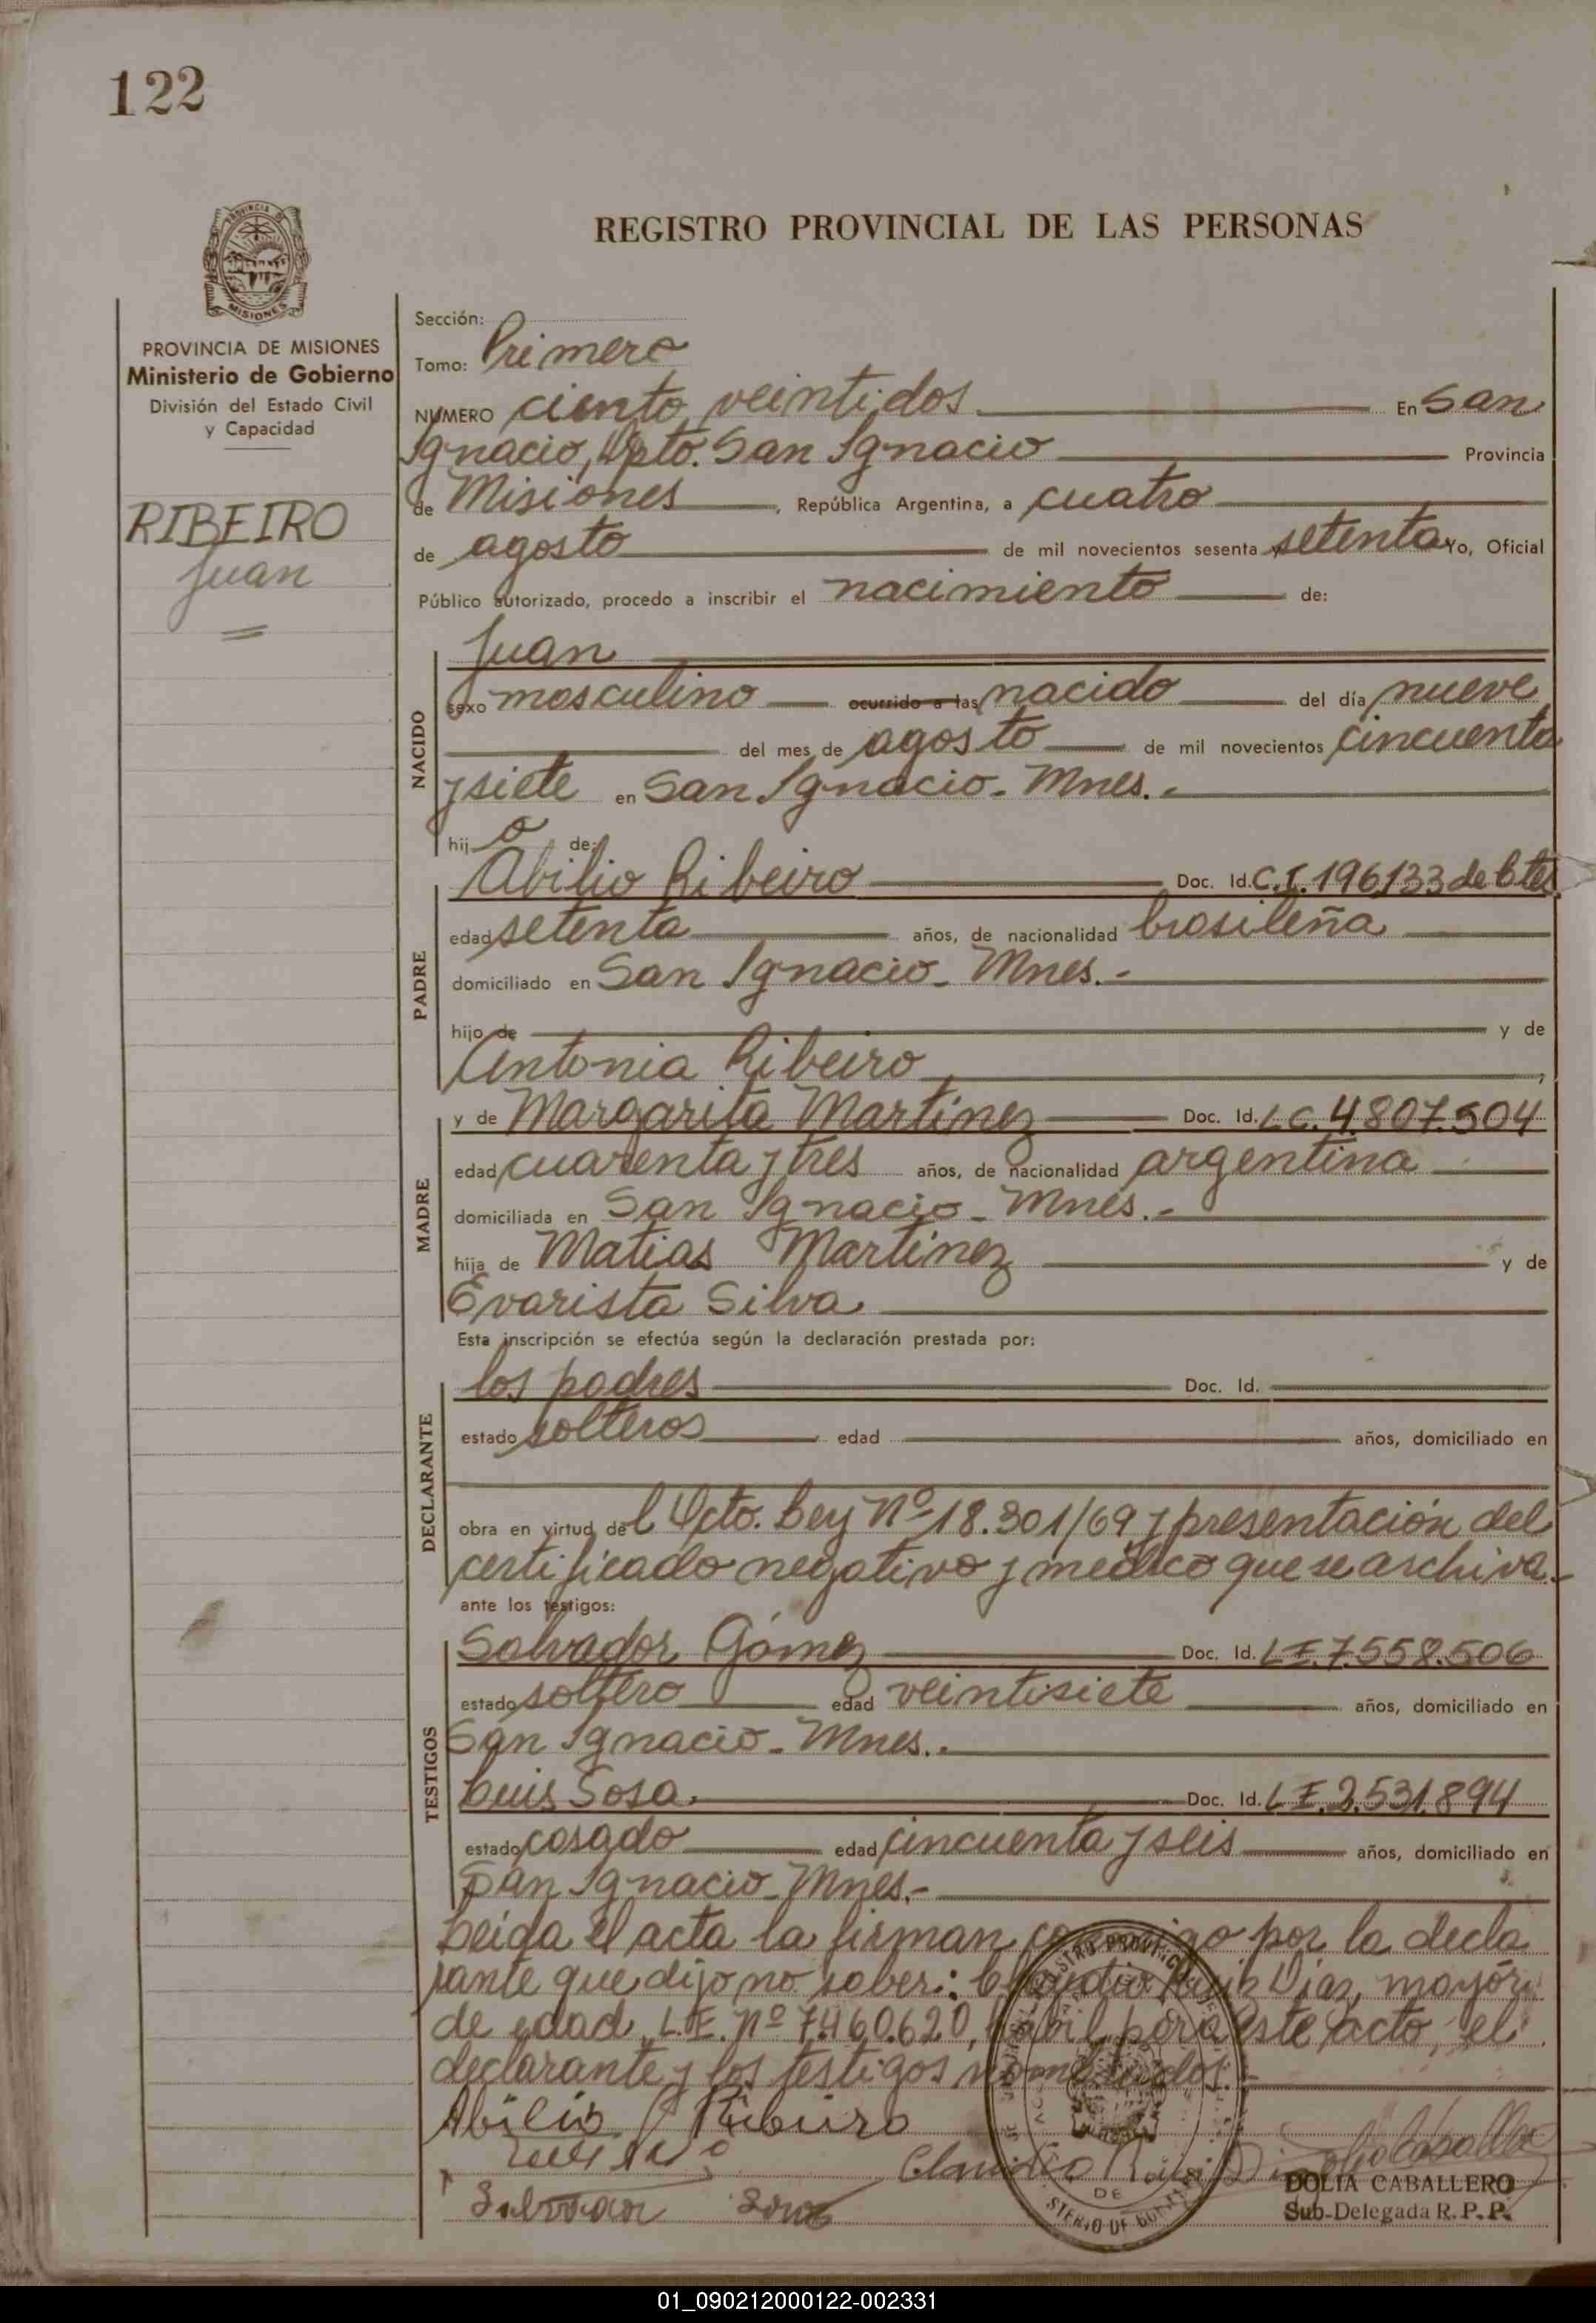 122
REGISTRO PROVINCIAL DE LAS PERSONAS
PROVINCIA DE
MISIONES
PROVINCIA DE MISIONES
Ministerio de Gobierno
División del Estado Civil
y Capacidad
RIBEIRO
Juan
Sección:
Tomo: Primero
NUMERO ciento veintidos En San
Ignacio, Dpto. San Ignacio Provincia
de Misiones, República Argentina, a cuatro
de agosto de mil novecientos sesenta y setenta Yo, Oficial
Público autorizado, procedo a inscribir el nacimiento de:
NACIDO
Juan
sexo masculino ocurrido a las nacido del día nueve
del mes de agosto de mil novecientos cincuenta
y siete en San Ignacio - Mnes. -
hijo de:
PADRE
Abilio Ribeiro Doc. Id. C.I. 196133 de Ctes.
edad setenta años, de nacionalidad brasileña
domiciliado en San Ignacio - Mnes. -
hijo de y de
Antonia Ribeiro,
MADRE
y de Margarita Martínez Doc. Id. L.C. 4.807.504
edad cuarenta y tres años, de nacionalidad argentina
domiciliada en San Ignacio - Mnes. -
hija de Matias Martínez y de
Evarista Silva
Esta inscripción se efectúa según la declaración prestada por:
DECLARANTE
los padres Doc. Id.
estado solteros edad años, domiciliado en
obra en virtud del Dcto. Ley Nº 18.301/69 y presentación del
certificado negativo y médico que se archiva. -
ante los testigos:
TESTIGOS
Salvador Gómez Doc. Id. L.E. 7.558.506
estado soltero edad veintisiete años, domiciliado en
San Ignacio - Mnes. -
Luis Sosa. Doc. Id. L.E. 2.531.894
estado casado edad cincuenta y seis años, domiciliado en
San Ignacio - Mnes. -
Leida el acta la firman conmigo por la decla
rante que dijo no saber: Claudio Ruiz Diaz, mayor
de edad, L.E. Nº 7.460.620, habil para este acto, el
declarante y los testigos nombrados. -
Abilio Ribeiro
Claudio Ruiz Diaz
DOLIA CABALLERO
Sub-Delegada R. P. P.
01_090212000122-002331